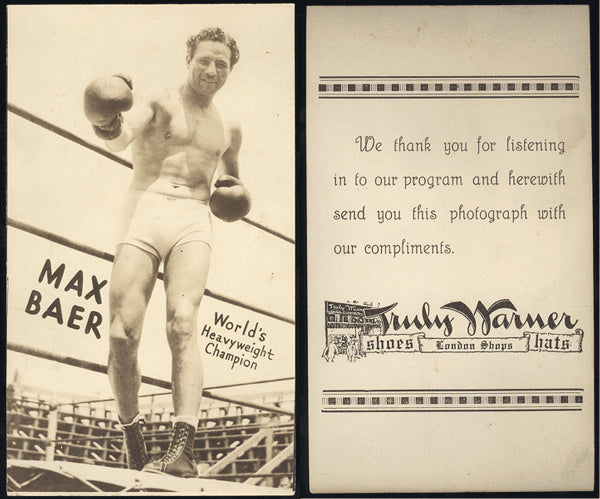 MAX
BAER
World's
Heavyweight
Champion
We thank you for listening
in to our program and herewith
send you this photograph with
our compliments.
Truly Warner
shoes London Shops hats